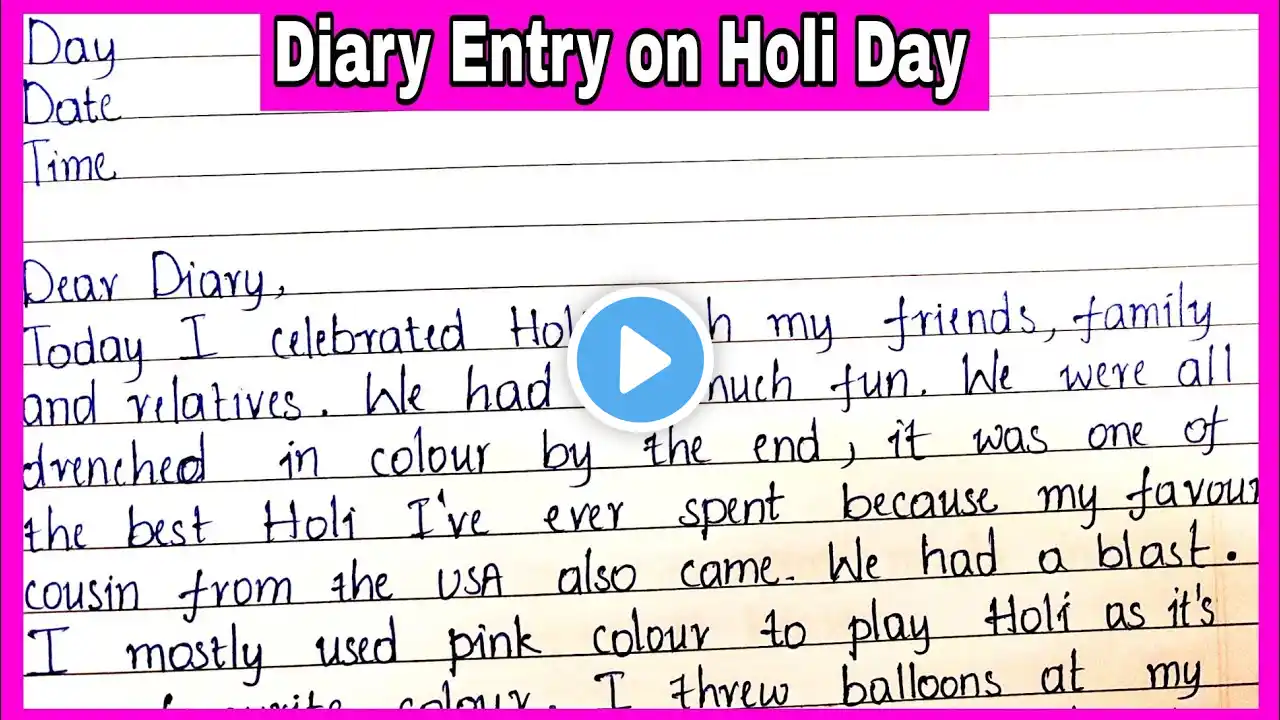 Diary Entry on Holi Day
Day
Date
Time
Dear Diary,
Today I celebrated Hol h my friends, family
and relatives. We had much fun. We were all
drenched in colour by the end, it was one of
the best Holi I've ever spent because my favour
cousin from the USA also came. We had a blast.
I mostly used pink colour to play Holi as it's
colour. I threw balloons at my